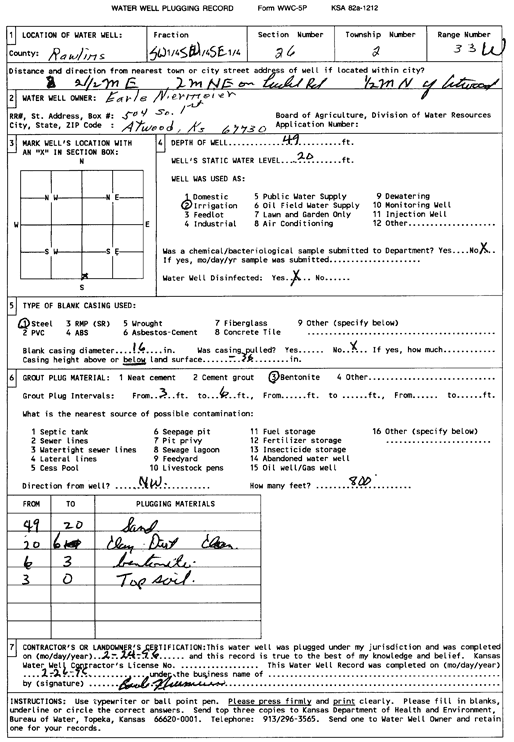 WATER WELL PLUGGING RECORD Form WWC-5P KSA 82a-1212
1 LOCATION OF WATER WELL: Fraction Section Number Township Number Range Number
County: Rawlins SW1/4SW1/4SE1/4 26 2 33W
Distance and direction from nearest town or city street address of well if located within city?
2 1/2 M E 2 M NE on Rd 1/2 M N of Atwood
2 WATER WELL OWNER: Earle Niermeier
RR#, St. Address, Box #: 504 So. 1st Board of Agriculture, Division of Water Resources
City, State, ZIP Code : Atwood, Ks 67730 Application Number:
3 MARK WELL'S LOCATION WITH AN "X" IN SECTION BOX:
N
N W N E
W E
S W S E
X
S
4 DEPTH OF WELL.....49.....ft.
WELL'S STATIC WATER LEVEL..20....ft.
WELL WAS USED AS:
1 Domestic 5 Public Water Supply 9 Dewatering
2 Irrigation 6 Oil Field Water Supply 10 Monitoring Well
3 Feedlot 7 Lawn and Garden Only 11 Injection Well
4 Industrial 8 Air Conditioning 12 Other...........
Was a chemical/bacteriological sample submitted to Department? Yes....No.X..
If yes, mo/day/yr sample was submitted....................
Water Well Disinfected: Yes..X.. No......
5 TYPE OF BLANK CASING USED:
1 Steel 3 RMP (SR) 5 Wrought 7 Fiberglass 9 Other (specify below)
2 PVC 4 ABS 6 Asbestos-Cement 8 Concrete Tile ....................
Blank casing diameter....16....in. Was casing pulled? Yes...... No..X... If yes, how much.........
Casing height above or below land surface.....-36..........in.
6 GROUT PLUG MATERIAL: 1 Neat cement 2 Cement grout 3 Bentonite 4 Other...................
Grout Plug Intervals: From..3..ft. to..6..ft., From.....ft. to .....ft., From...... to......ft.
What is the nearest source of possible contamination:
1 Septic tank 6 Seepage pit 11 Fuel storage 16 Other (specify below)
2 Sewer lines 7 Pit privy 12 Fertilizer storage ....................
3 Watertight sewer lines 8 Sewage lagoon 13 Insecticide storage
4 Lateral lines 9 Feedyard 14 Abandoned water well
5 Cess Pool 10 Livestock pens 15 Oil well/Gas well
Direction from well? .....NW...... How many feet? .....800.....
FROM TO PLUGGING MATERIALS
49 20 Sand
20 6 Clay Dirt Clean
6 3 bentonite
3 0 Top soil
7 CONTRACTOR'S OR LANDOWNER'S CERTIFICATION: This water well was plugged under my jurisdiction and was completed
on (mo/day/year)..2-24-96...... and this record is true to the best of my knowledge and belief. Kansas
Water Well Contractor's License No. ................ This Water Well Record was completed on (mo/day/year)
....2-26-96.........under the business name of ..........................
by (signature)
INSTRUCTIONS: Use typewriter or ball point pen. Please press firmly and print clearly. Please fill in blanks,
underline or circle the correct answers. Send top three copies to Kansas Department of Health and Environment,
Bureau of Water, Topeka, Kansas 66620-0001. Telephone: 913/296-3565. Send one to Water Well Owner and retain
one for your records.